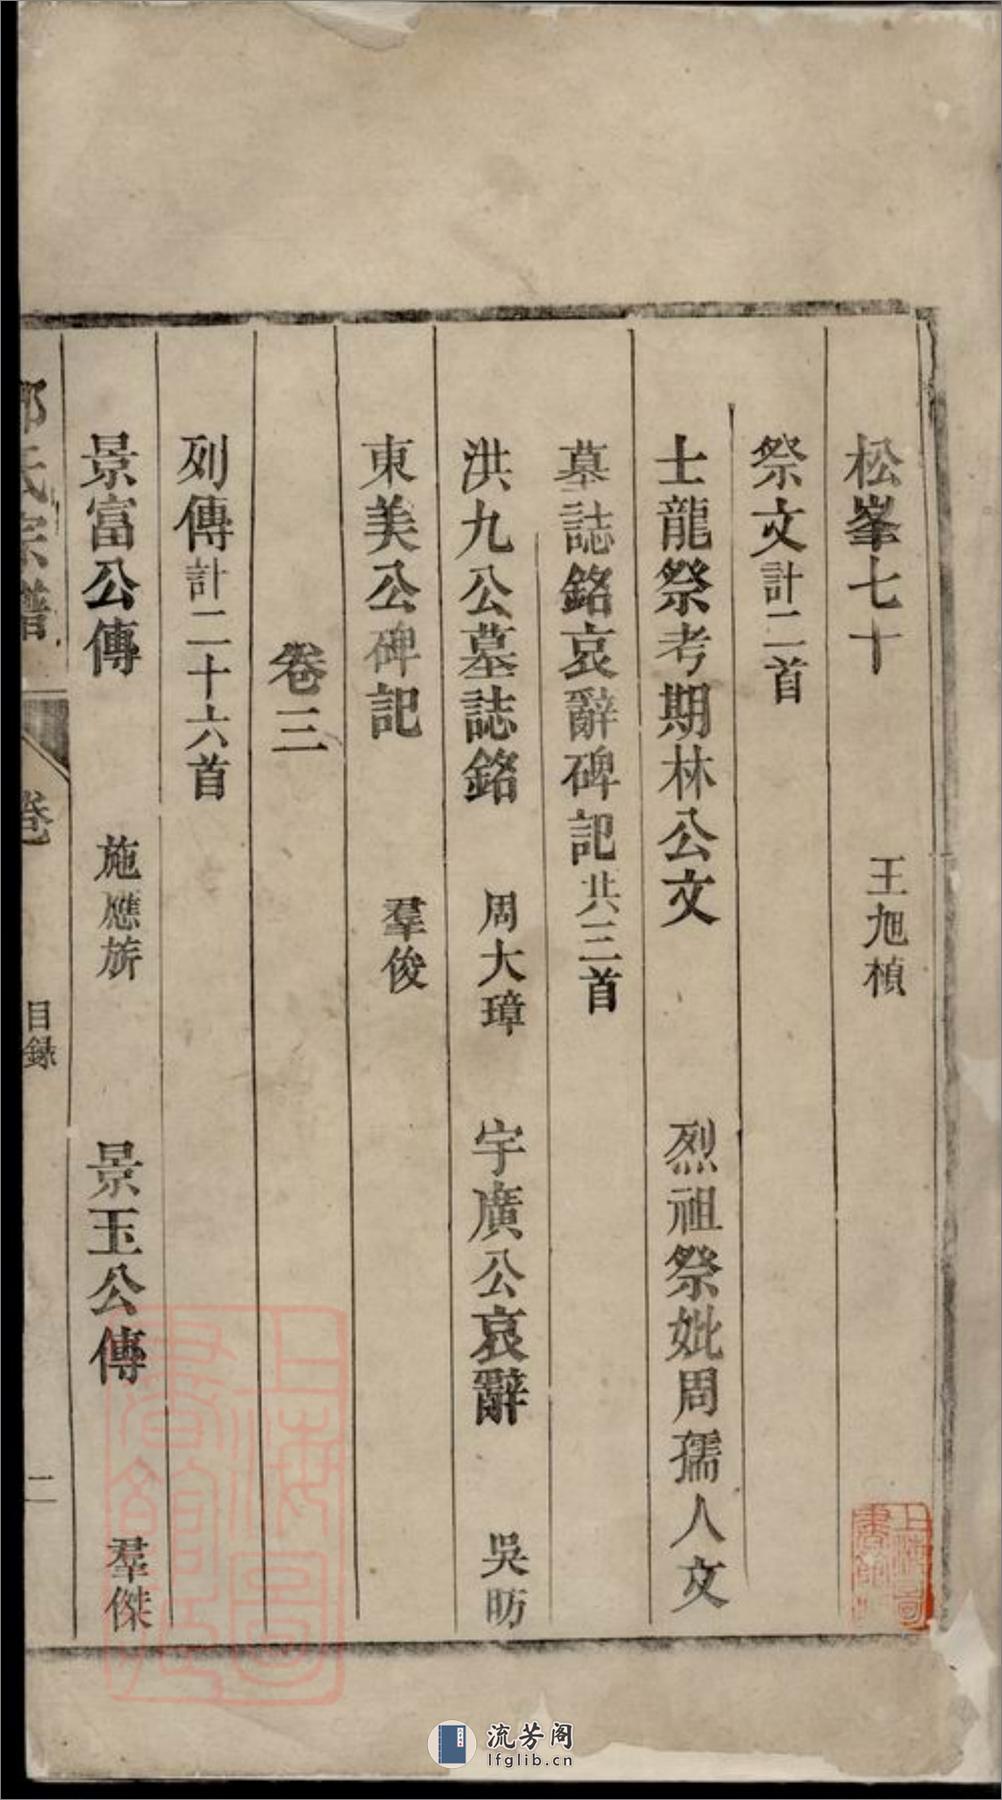 松峯七十 王旭楨
祭文計二首
士龍祭考期林公文 烈祖祭妣周孺人文
墓誌銘哀辭碑記共三首
洪九公墓誌銘 周大璋 宇廣公哀辭 吳昉
東美公碑記 羣俊
卷三
列傳計二十六首
景富公傳 施應旂 景玉公傳 羣傑
氏宗譜 卷 目錄 二
上海圖書館藏
流芳阁
lfglib.cn